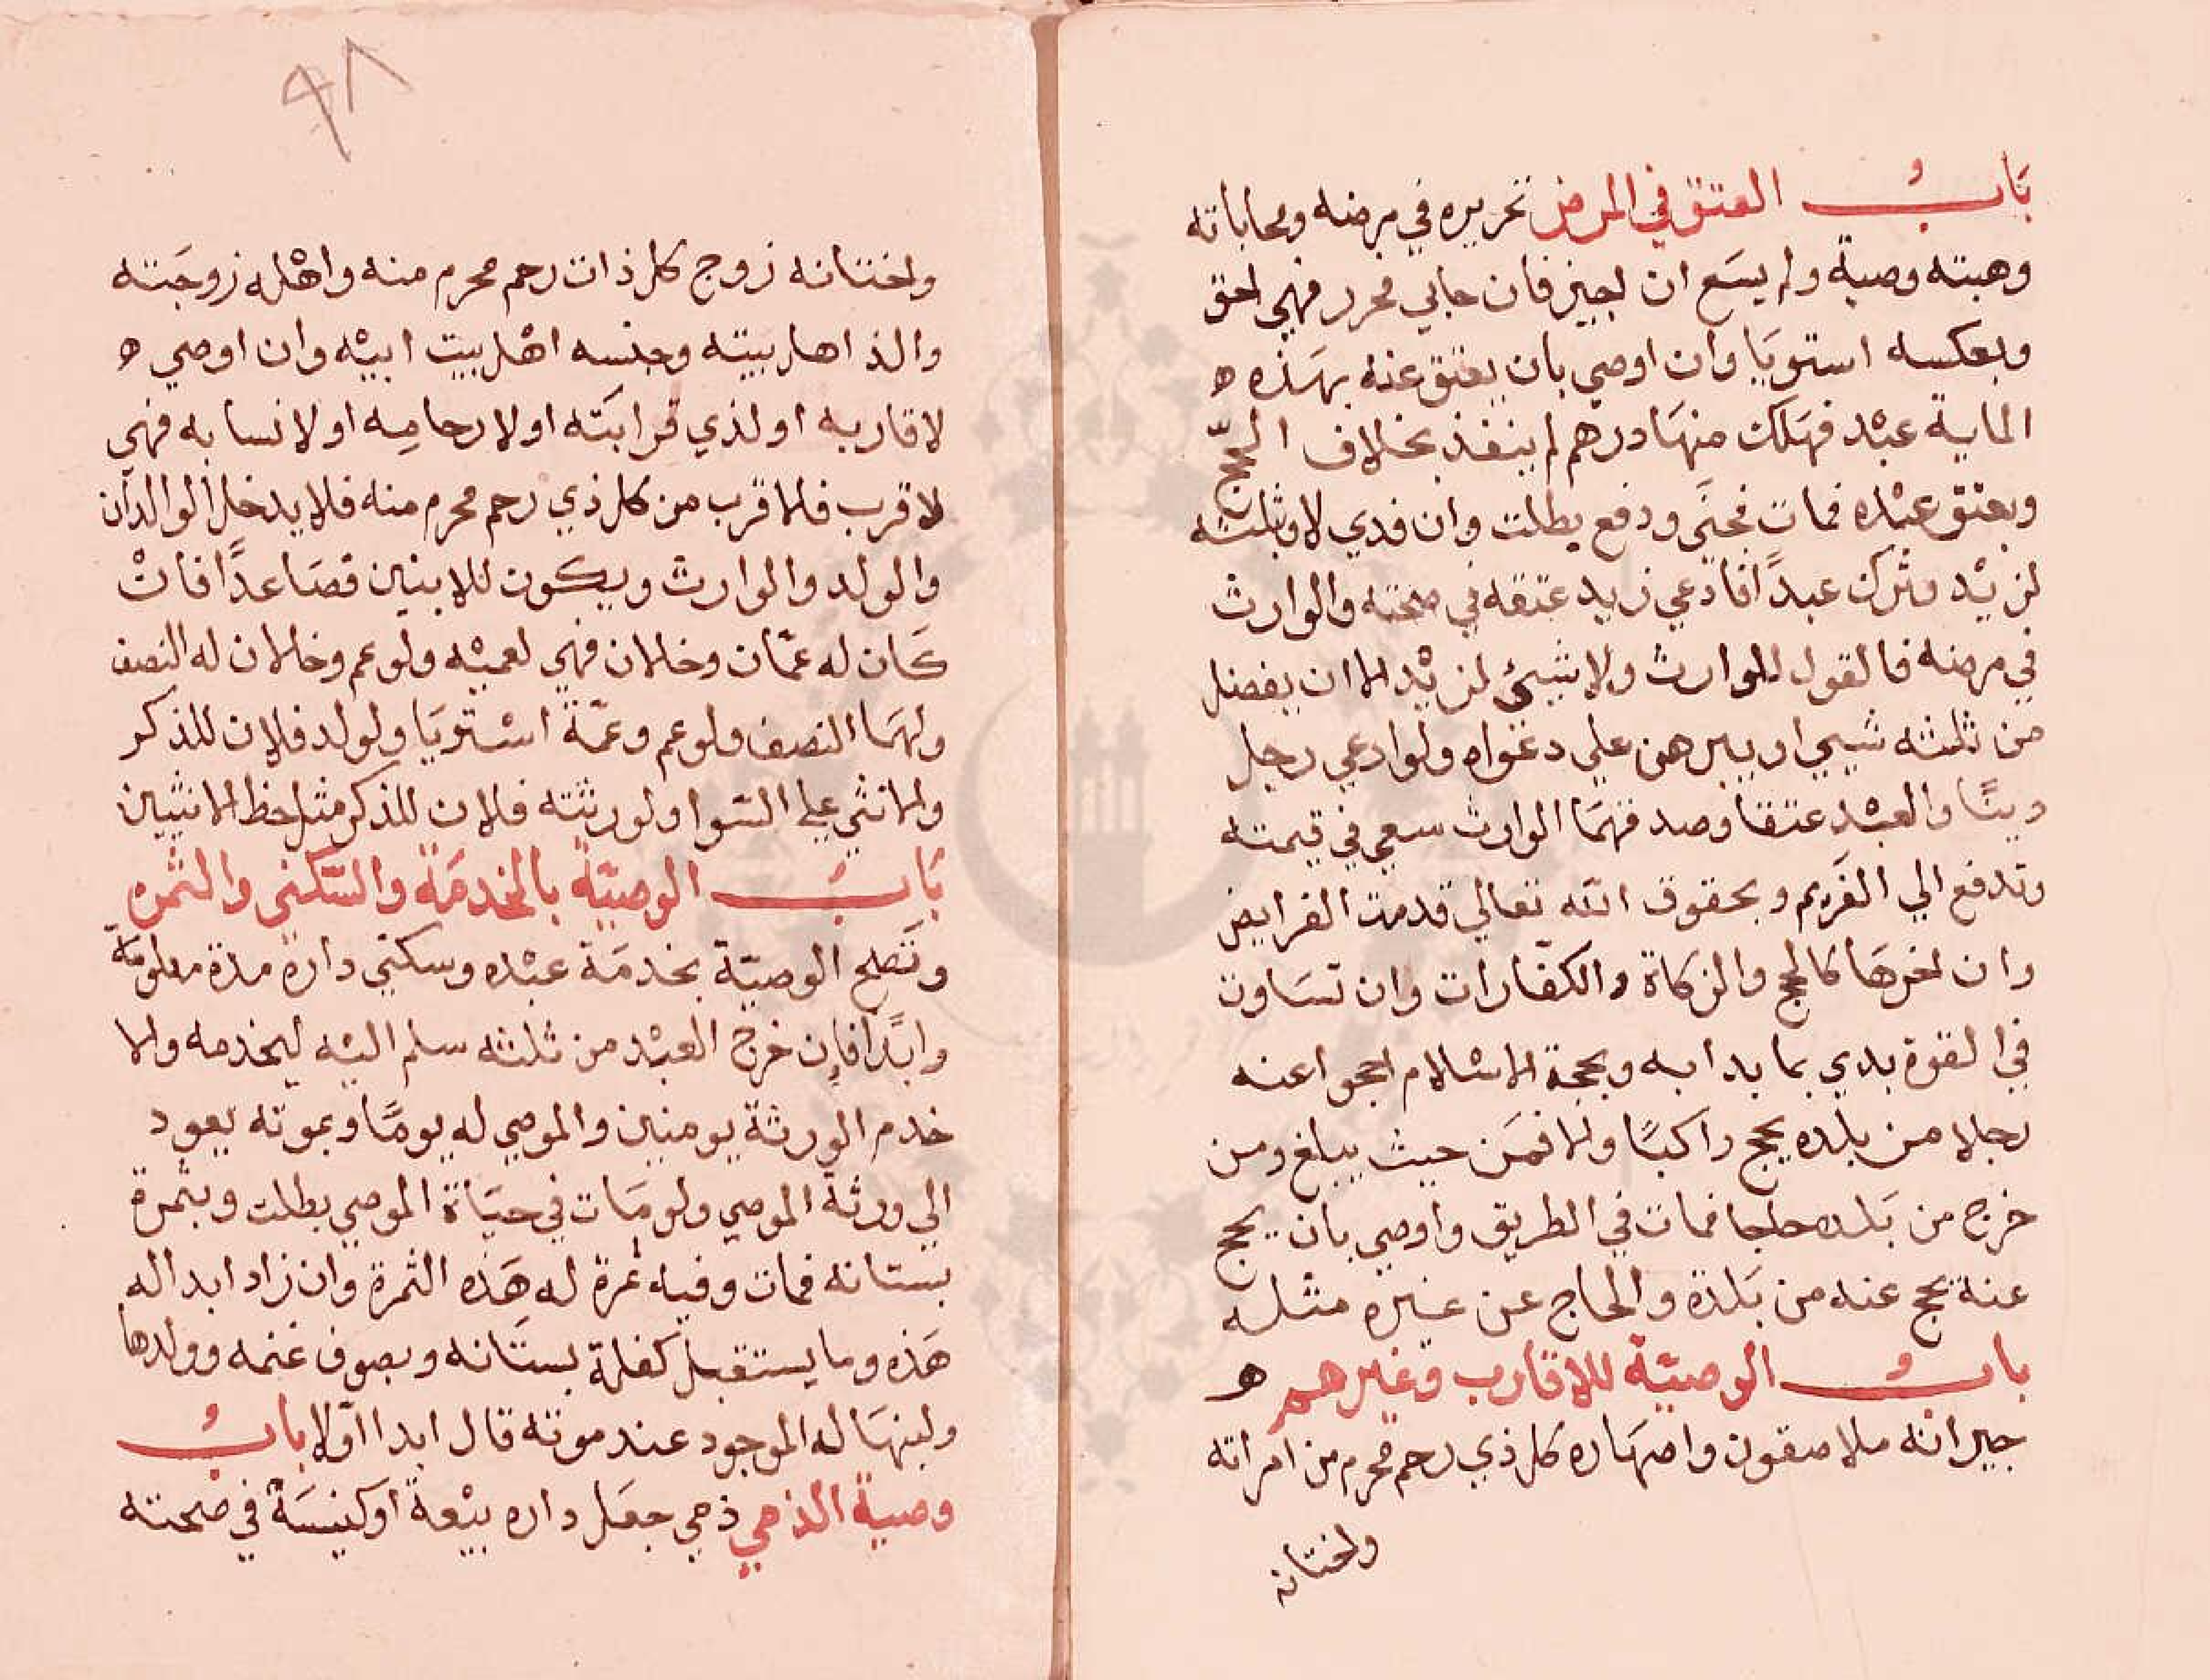 بَابُ العتق في المرض تحريره في مرضه ومحاباته
وهبته وصية ولم يسَع ان اجيز فان حابي فحرر فهي احق
وبعكسه استويَا وان اوصي بان يعتق عنه بهَذه ه
الماية عبْد فهَلك منهَا درهم لم ينفذ بخلاف الحجّ
وبعتق عبْده فمات فجنَي ودفع بطلت وان فدي لا وبثلثه
لزيْد وترك عبدًا فادّعي زيد عتقه في صحته والوارث
في مرضه فالقول للوارث ولا شيئ لزيْد الا ان يفضل
من ثلثه شيي او يبرهن علي دعْواه ولو ادعي رجل
دينًا والعبْد عتقا وصدقهمَا الوارث سعي في قيمته
وتدفع الي الغَريم وبحقوق الله تعالي قدمت الفرايض
وان اخرهَا كالحج والزكاة والكفّارات وان تسَاوت
في القوة بدي بما بدا به وبحجة الاسْلام احجوا عنه
رجلا من بلده يحج راكبًا والا فمَن حيث يبلغ ومن
خرج من بَلده حاجا فمات في الطريق واوصي بان يحج
عنه يحج عنه من بَلده والحاج عن غيره مثله
بابُ الوصيّة للاقارب وغيرهم ه
جيرانه ملاصقون واصهَاره كل ذي رحم محرم من امراته
واختانه
٩٨
واختانه زوج كل ذات رحم محرم منه واهْله زوجَته
والذ اهل بيته وجنسه اهْل بيت ابيْه وان اوصي ه
لاقاربه او لذي قرابَته او لارحامِه او لانسابه فهي
لاقرب فالاقرب من كل ذي رحم محرم منه فلا يدخل الوالدان
والولد والوارث ويكون للاثنين فصَاعدًا فان
كَان له عمّان وخالان فهي لعميْه ولو عم وخالان له النصف
ولهمَا النصف ولو عم وعمّة اسْتويَا ولولد فلان للذكر
والانثي علي السّوا ولورثته فلان للذكر مثل حظ الانثيين
بَابُ الوصيّة بالخدمَة والسّكني والثمره
وتَصح الوصيّة بخدمَة عبْده وسكني داره مدة معلومَة
وابَدًا فإن خرج العبْد من ثلثه سلم اليْه ليخدمه والا
خدم الورثة يومين والموصي له يومًا وبموته يعود
الي ورثة الموصي ولو مَات في حيَاة الموصي بطلت وبثمرة
بستانه فمات وفيه ثمرة له هَذه الثمرة وان زاد ابدا له
هَذه وما يستقبل كغلة بستَانه وبصوف غنمه وولدها
ولبنهَا له الموجود عند موته قال ابدا اوّلا بابُ
وصية الذمي ذمي جعَل داره بيْعة او كنيسَة في صحته